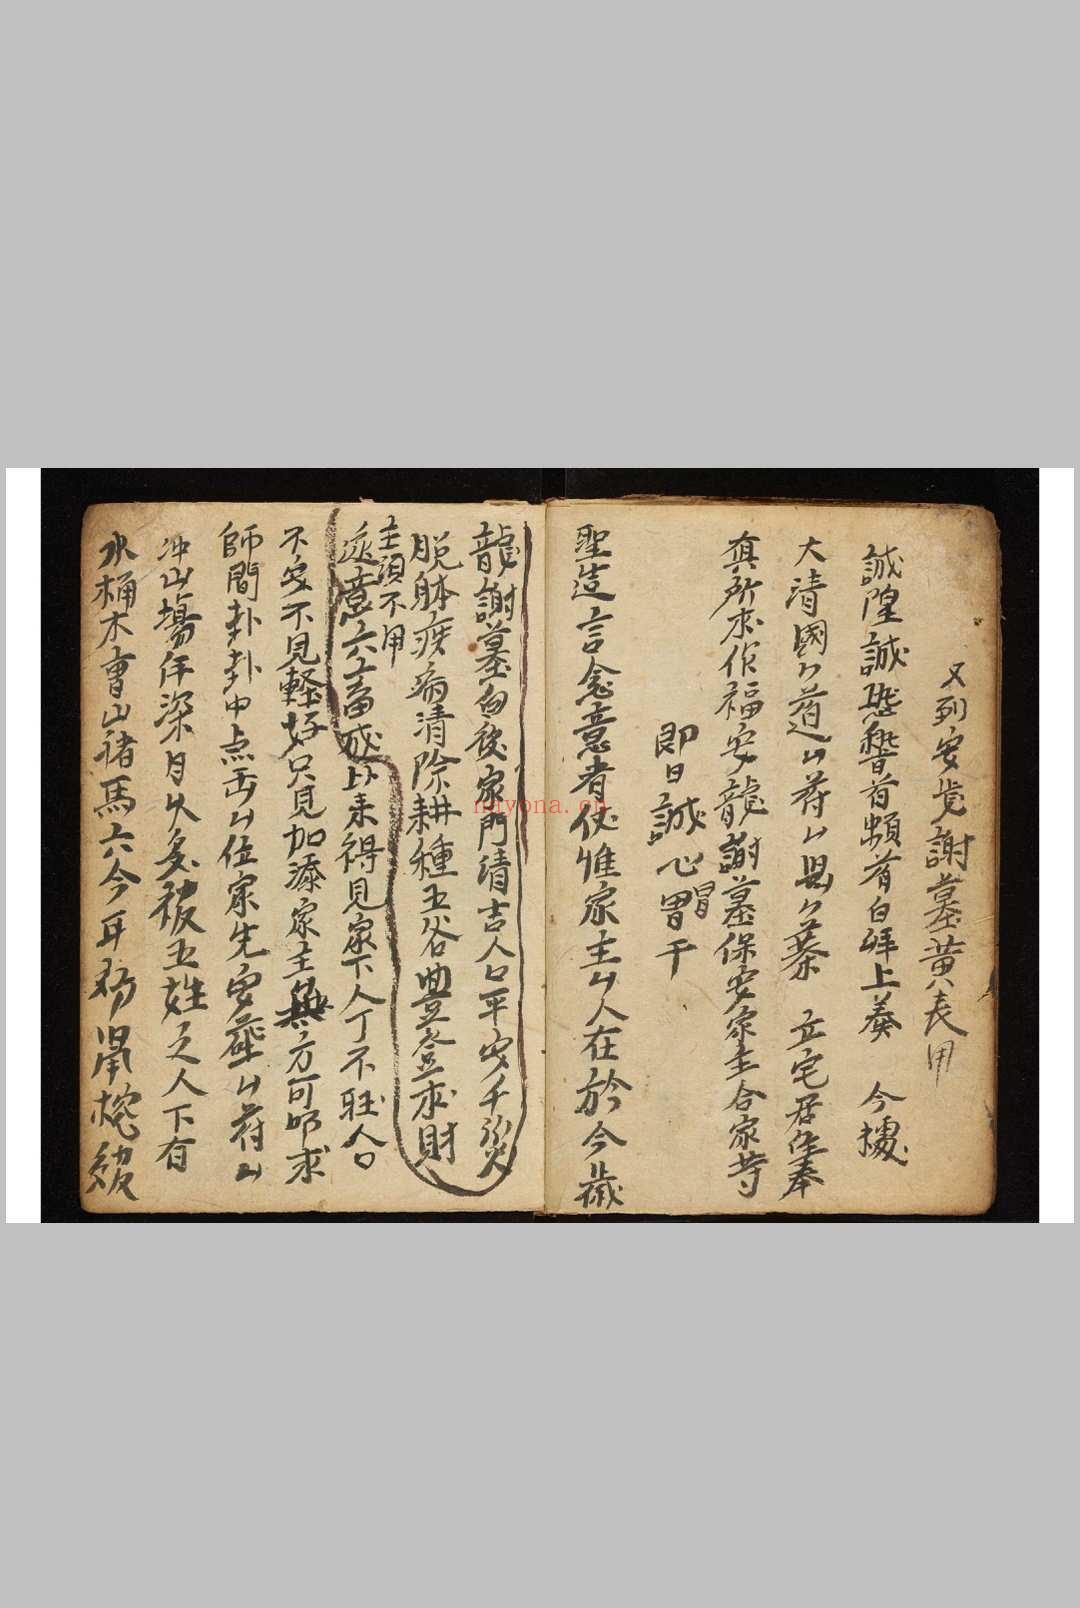 又列安竜謝墓黄表用
誠隍誠恐稽首頓首白拜上奏 今據
大清國ㄣ道ㄣ府ㄣ縣ㄣ寨 立宅居住奉
真所求作福安龍謝墓保安家主合家等
即日誠心冒干
冒
聖造言念意者伏惟家主ㄣ人在於今歲
龍謝墓向後家門清吉人口平安千災
脱躰疾病清除耕種五谷豐登求財
主須不用
遂意六畜成 以来得見家下人丁不旺人口
不安不見輕好只見加添家主無方可叩求
師問卦卦中点出ㄣ位家先安葬ㄣ府ㄣ
冲山塲年深月久多被五姓之人下有
水桶木曹山猪馬六今耳
nayona.cn